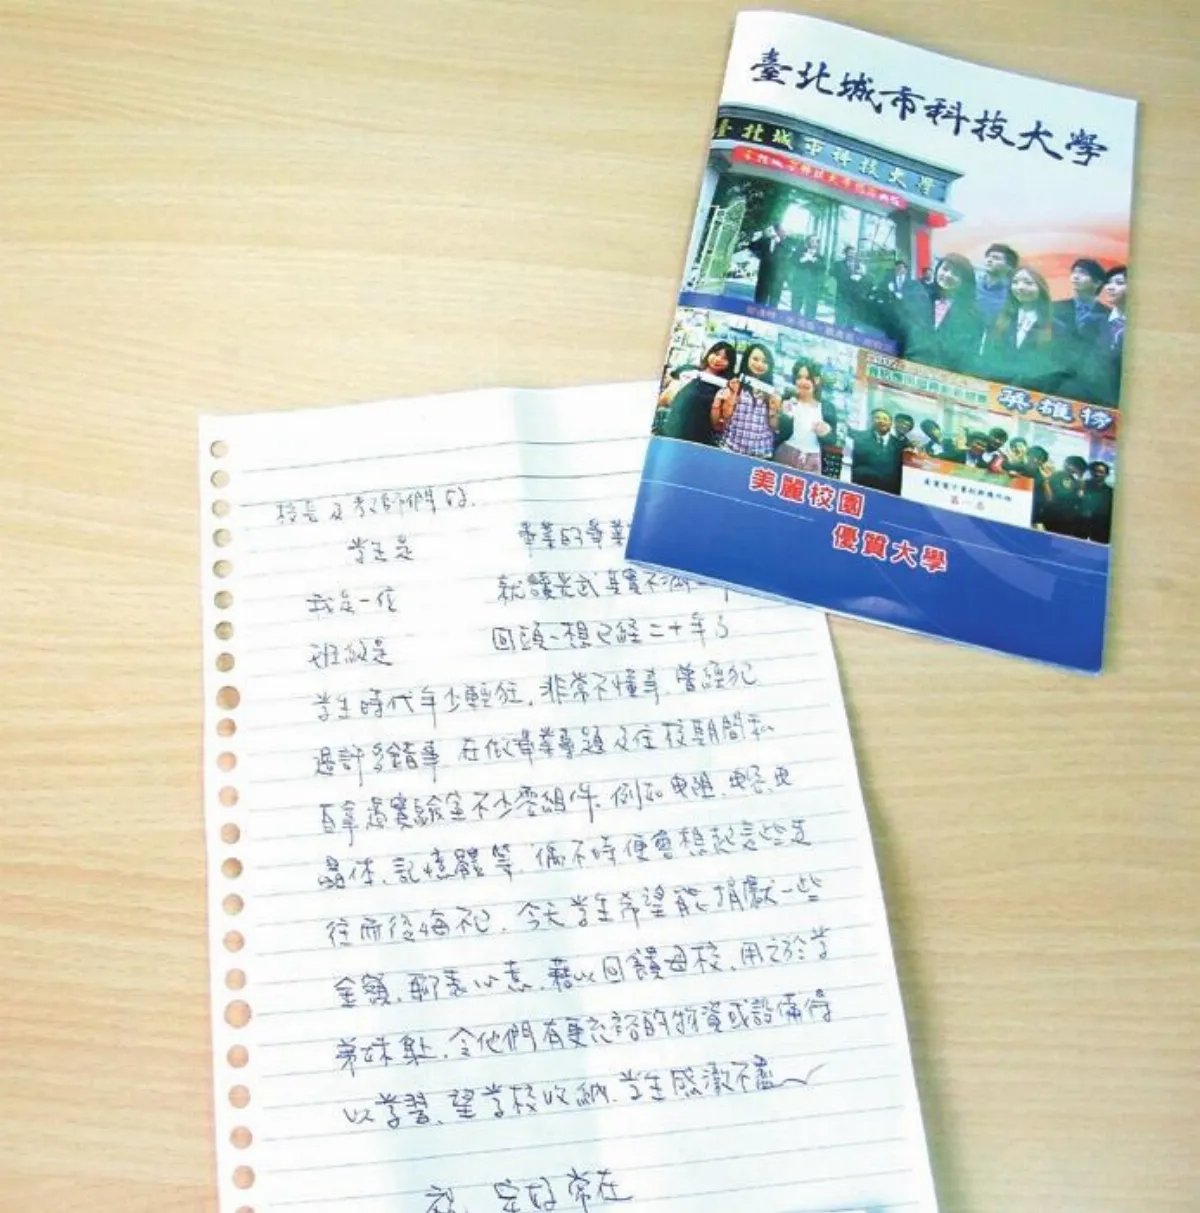 臺北城市科技大學
臺北城市科技大學
英雄榜
第一名
美麗校園
優質大學
校長及老師們好.
學生是 畢業的畢業
我是一位 就讀光武其實不
班級是 回頭一想已經二十年了
學生時代年少輕狂,非常不懂事,曾經犯
過許多錯事 在做畢業專題及住校期間私
自拿過實驗室不少零組件,例如電阻、電容、电
晶体、記憶體等,偶不時便會想起這些過
往而後悔不已,今天學生希望能捐獻一些
金額,聊表心意,藉以回饋母校,用之於學
弟妹點,令他們有更充裕的物資或設備得
以學習,望學校收納,學生感激不盡
祝 安好常在